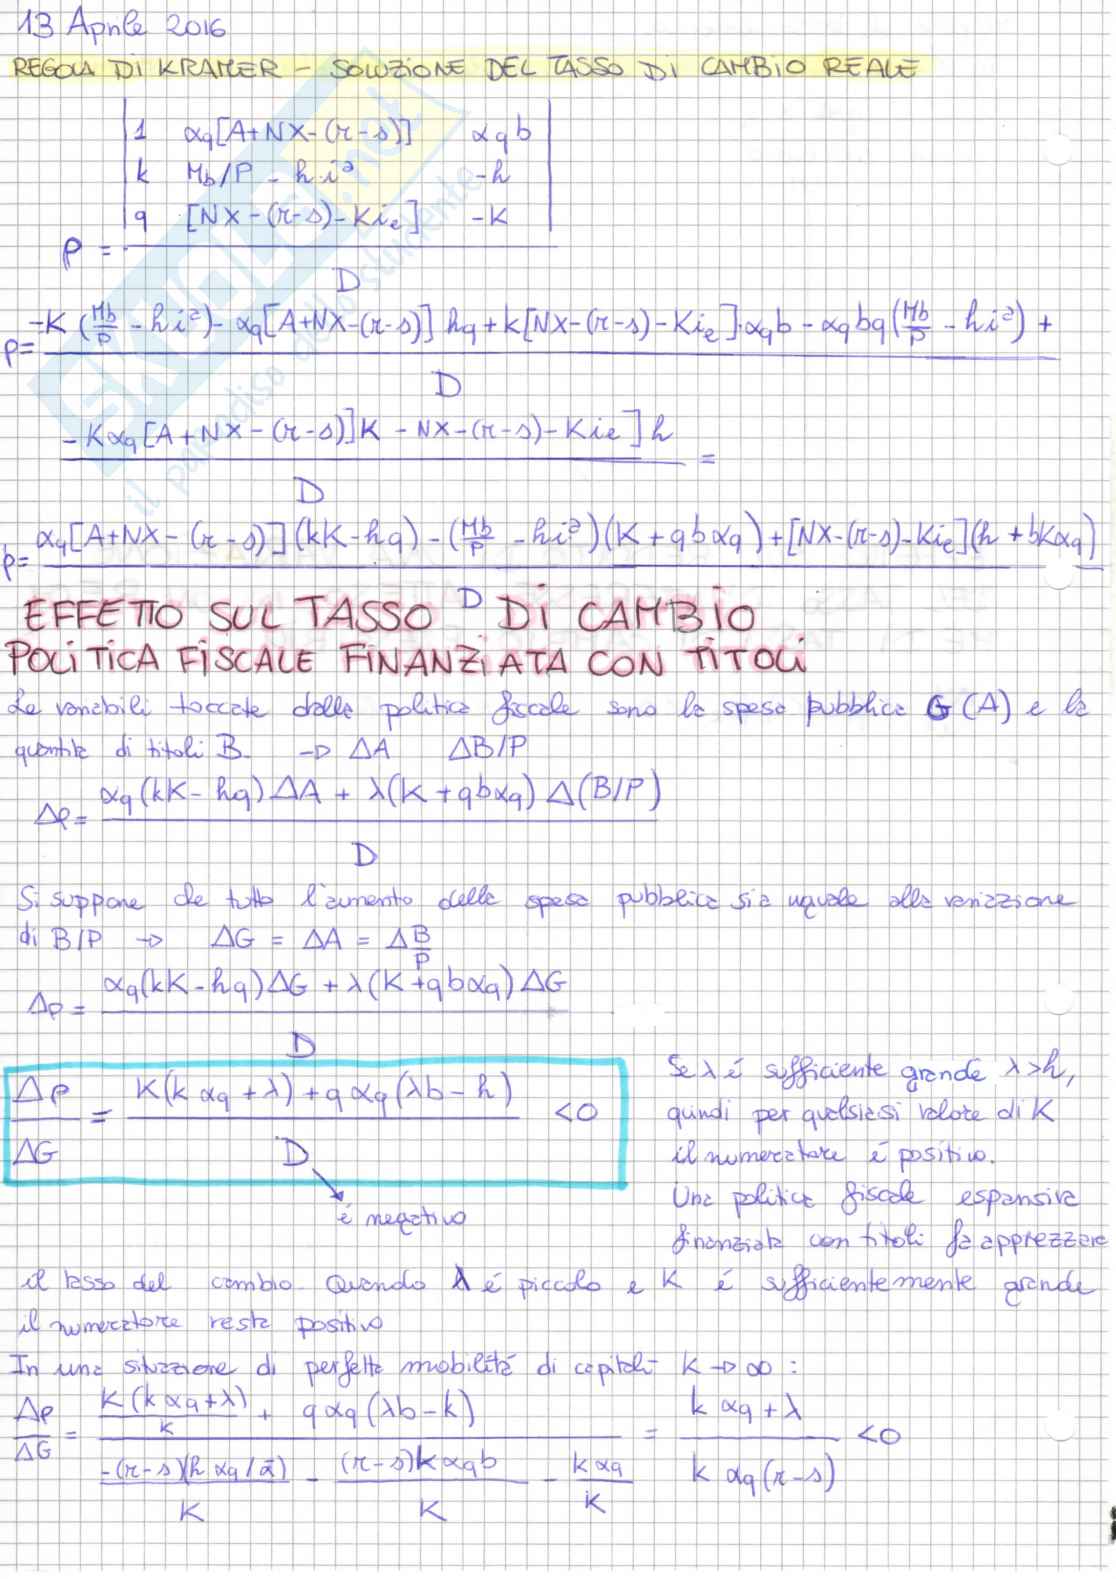 13 Aprile 2016
REGOLA DI KRAMER - SOLUZIONE DEL TASSO DI CAMBIO REALE
1 αq[A+NX-(r-s)] αqb
k Mb/P - hi² -h
q [NX-(r-s)-Kie] -K
ρ =
D
ρ= -K(Mb/P - hi²)- αq[A+NX-(r-s)] hq + k[NX-(r-s)-Kie]·αqb - αqbq(Mb/P - hi²) +
D
-Kαq[A+NX-(r-s)]K - NX-(r-s)-Kie]h =
D
ρ= αq[A+NX-(r-s)](kK-hq) - (Mb/P - hi²)(K+qbαq)+[NX-(r-s)-Kie](h+bkαq)
D
EFFETTO SUL TASSO DI CAMBIO
POLITICA FISCALE FINANZIATA CON TITOLI
Le variabili toccate dalla politica fiscale sono la spesa pubblica G (A) e la
quantità di titoli B. → ΔA ΔB/P
Δρ= αq(kK-hq)ΔA + λ(K+qbαq) Δ(B/P)
D
Si suppone che tutto l'aumento della spesa pubblica sia uguale alla variazione
di B/P → ΔG = ΔA = ΔB/P
Δρ= αq(kK-hq)ΔG + λ(K+qbαq)ΔG
D
Δρ/ΔG = K(kαq+λ)+qαq(λb-h) <0
D
è negativo
Se λ é sufficiente grande λ>h,
quindi per qualsiasi valore di K
il numeratore é positivo.
Una politica fiscale espansiva
finanziata con titoli fa apprezzare
il tasso del cambio. Quando λ é piccolo e K é sufficientemente grande
il numeratore resta positivo
In una situazione di perfetta mobilitá di capitali K→∞ :
Δρ/ΔG = K(kαq+λ)/K + qαq(λb-k) = kαq+λ <0
-(r-s)(hαq/ᾱ)/K - (r-s)kαqb/K - kαq/K kαq(r-s)
SKUOLA.net
il paradiso dello studente